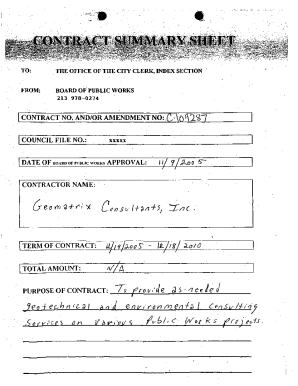 CONTRACT SUMMARY SHEET
TO: THE OFFICE OF THE CITY CLERK, INDEX SECTION
FROM: BOARD OF PUBLIC WORKS
213 978-0274
CONTRACT NO. AND/OR AMENDMENT NO: C-109287
COUNCIL FILE NO.: xxxxx
DATE OF BOARD OF PUBLIC WORKS APPROVAL: 11/9/2005
CONTRACTOR NAME:
Geomatrix Consultants, Inc.
TERM OF CONTRACT: 12/19/2005 - 12/18/2010
TOTAL AMOUNT: N/A
PURPOSE OF CONTRACT: To provide as-needed
geotechnical and environmental consulting
services on various Public Works projects.